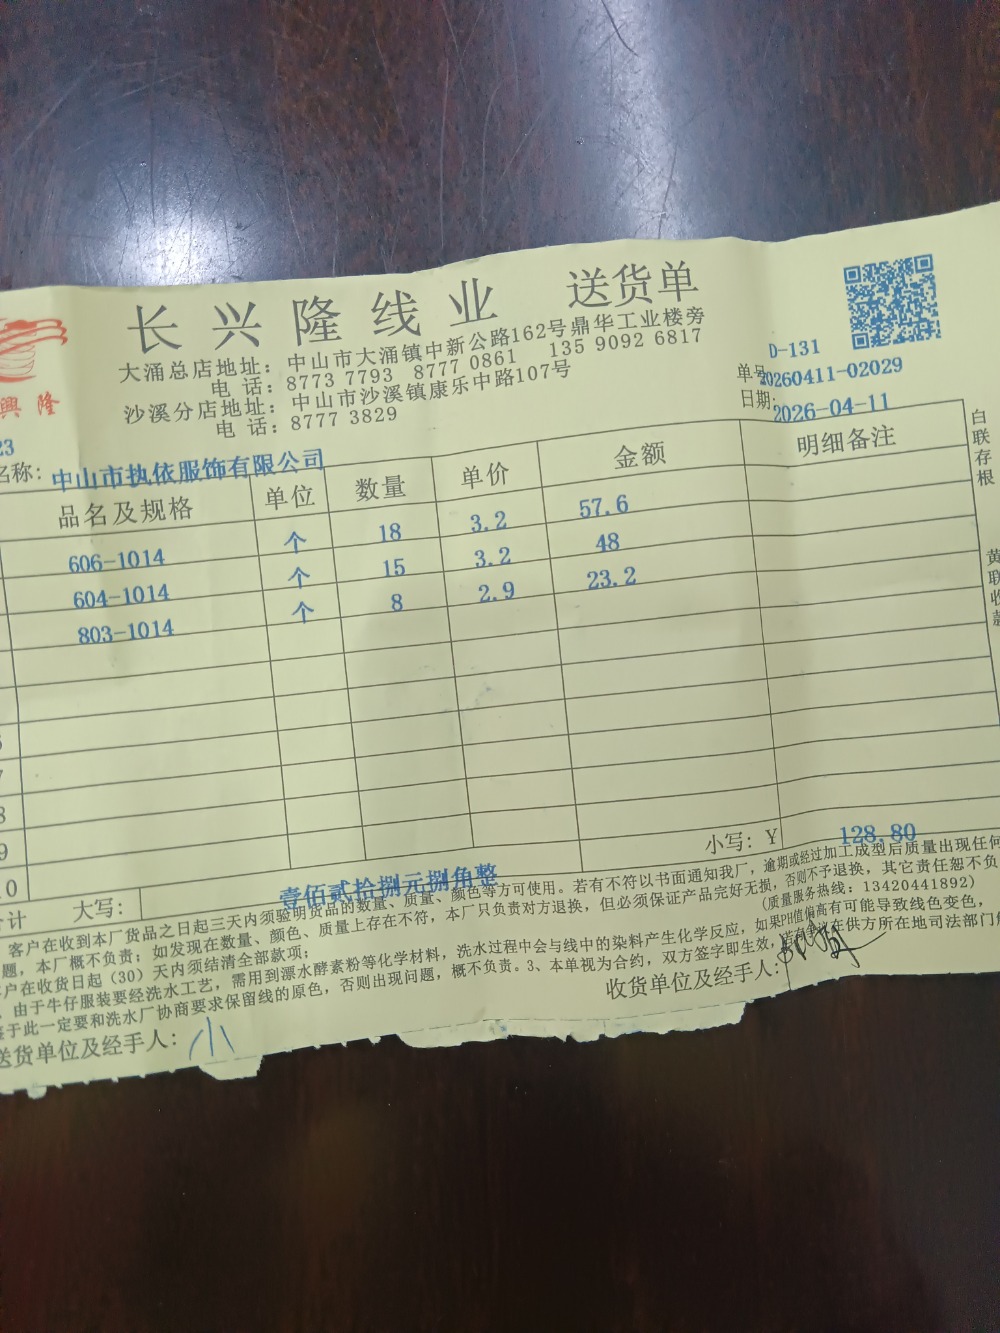 长兴隆线业 送货单
興隆
大涌总店地址：中山市大涌镇中新公路162号鼎华工业楼旁
电 话：8773 7793 8777 0861 135 9092 6817
沙溪分店地址：中山市沙溪镇康乐中路107号
电 话：8777 3829
D-131
单号20260411-02029
日期：2026-04-11
23
名称：中山市执依服饰有限公司
品名及规格 单位 数量 单价 金额 明细备注
606-1014 个 18 3.2 57.6
604-1014 个 15 3.2 48
803-1014 个 8 2.9 23.2
7
8
9
10
计 大写：壹佰贰拾捌元捌角整 小写：Y 128.80
客户在收到本厂货品之日起三天内须验明货品的数量、质量、颜色等方可使用。若有不符以书面通知我厂，逾期或经过加工成型后质量出现任何
题，本厂概不负责；如发现在数量、颜色、质量上存在不符，本厂只负责对方退换，但必须保证产品完好无损，否则不予退换，其它责任恕不负
户在收货日起（30）天内须结清全部款项； （质量服务热线：13420441892）
由于牛仔服装要经洗水工艺，需用到漂水酵素粉等化学材料，洗水过程中会与线中的染料产生化学反应，如果PH值偏高有可能导致线色变色，
鉴于此一定要和洗水厂协商要求保留线的原色，否则出现问题，概不负责。3、本单视为合约，双方签字即生效，若有争议在供方所在地司法部门
送货单位及经手人：小 收货单位及经手人：
白联存根
黄联收款